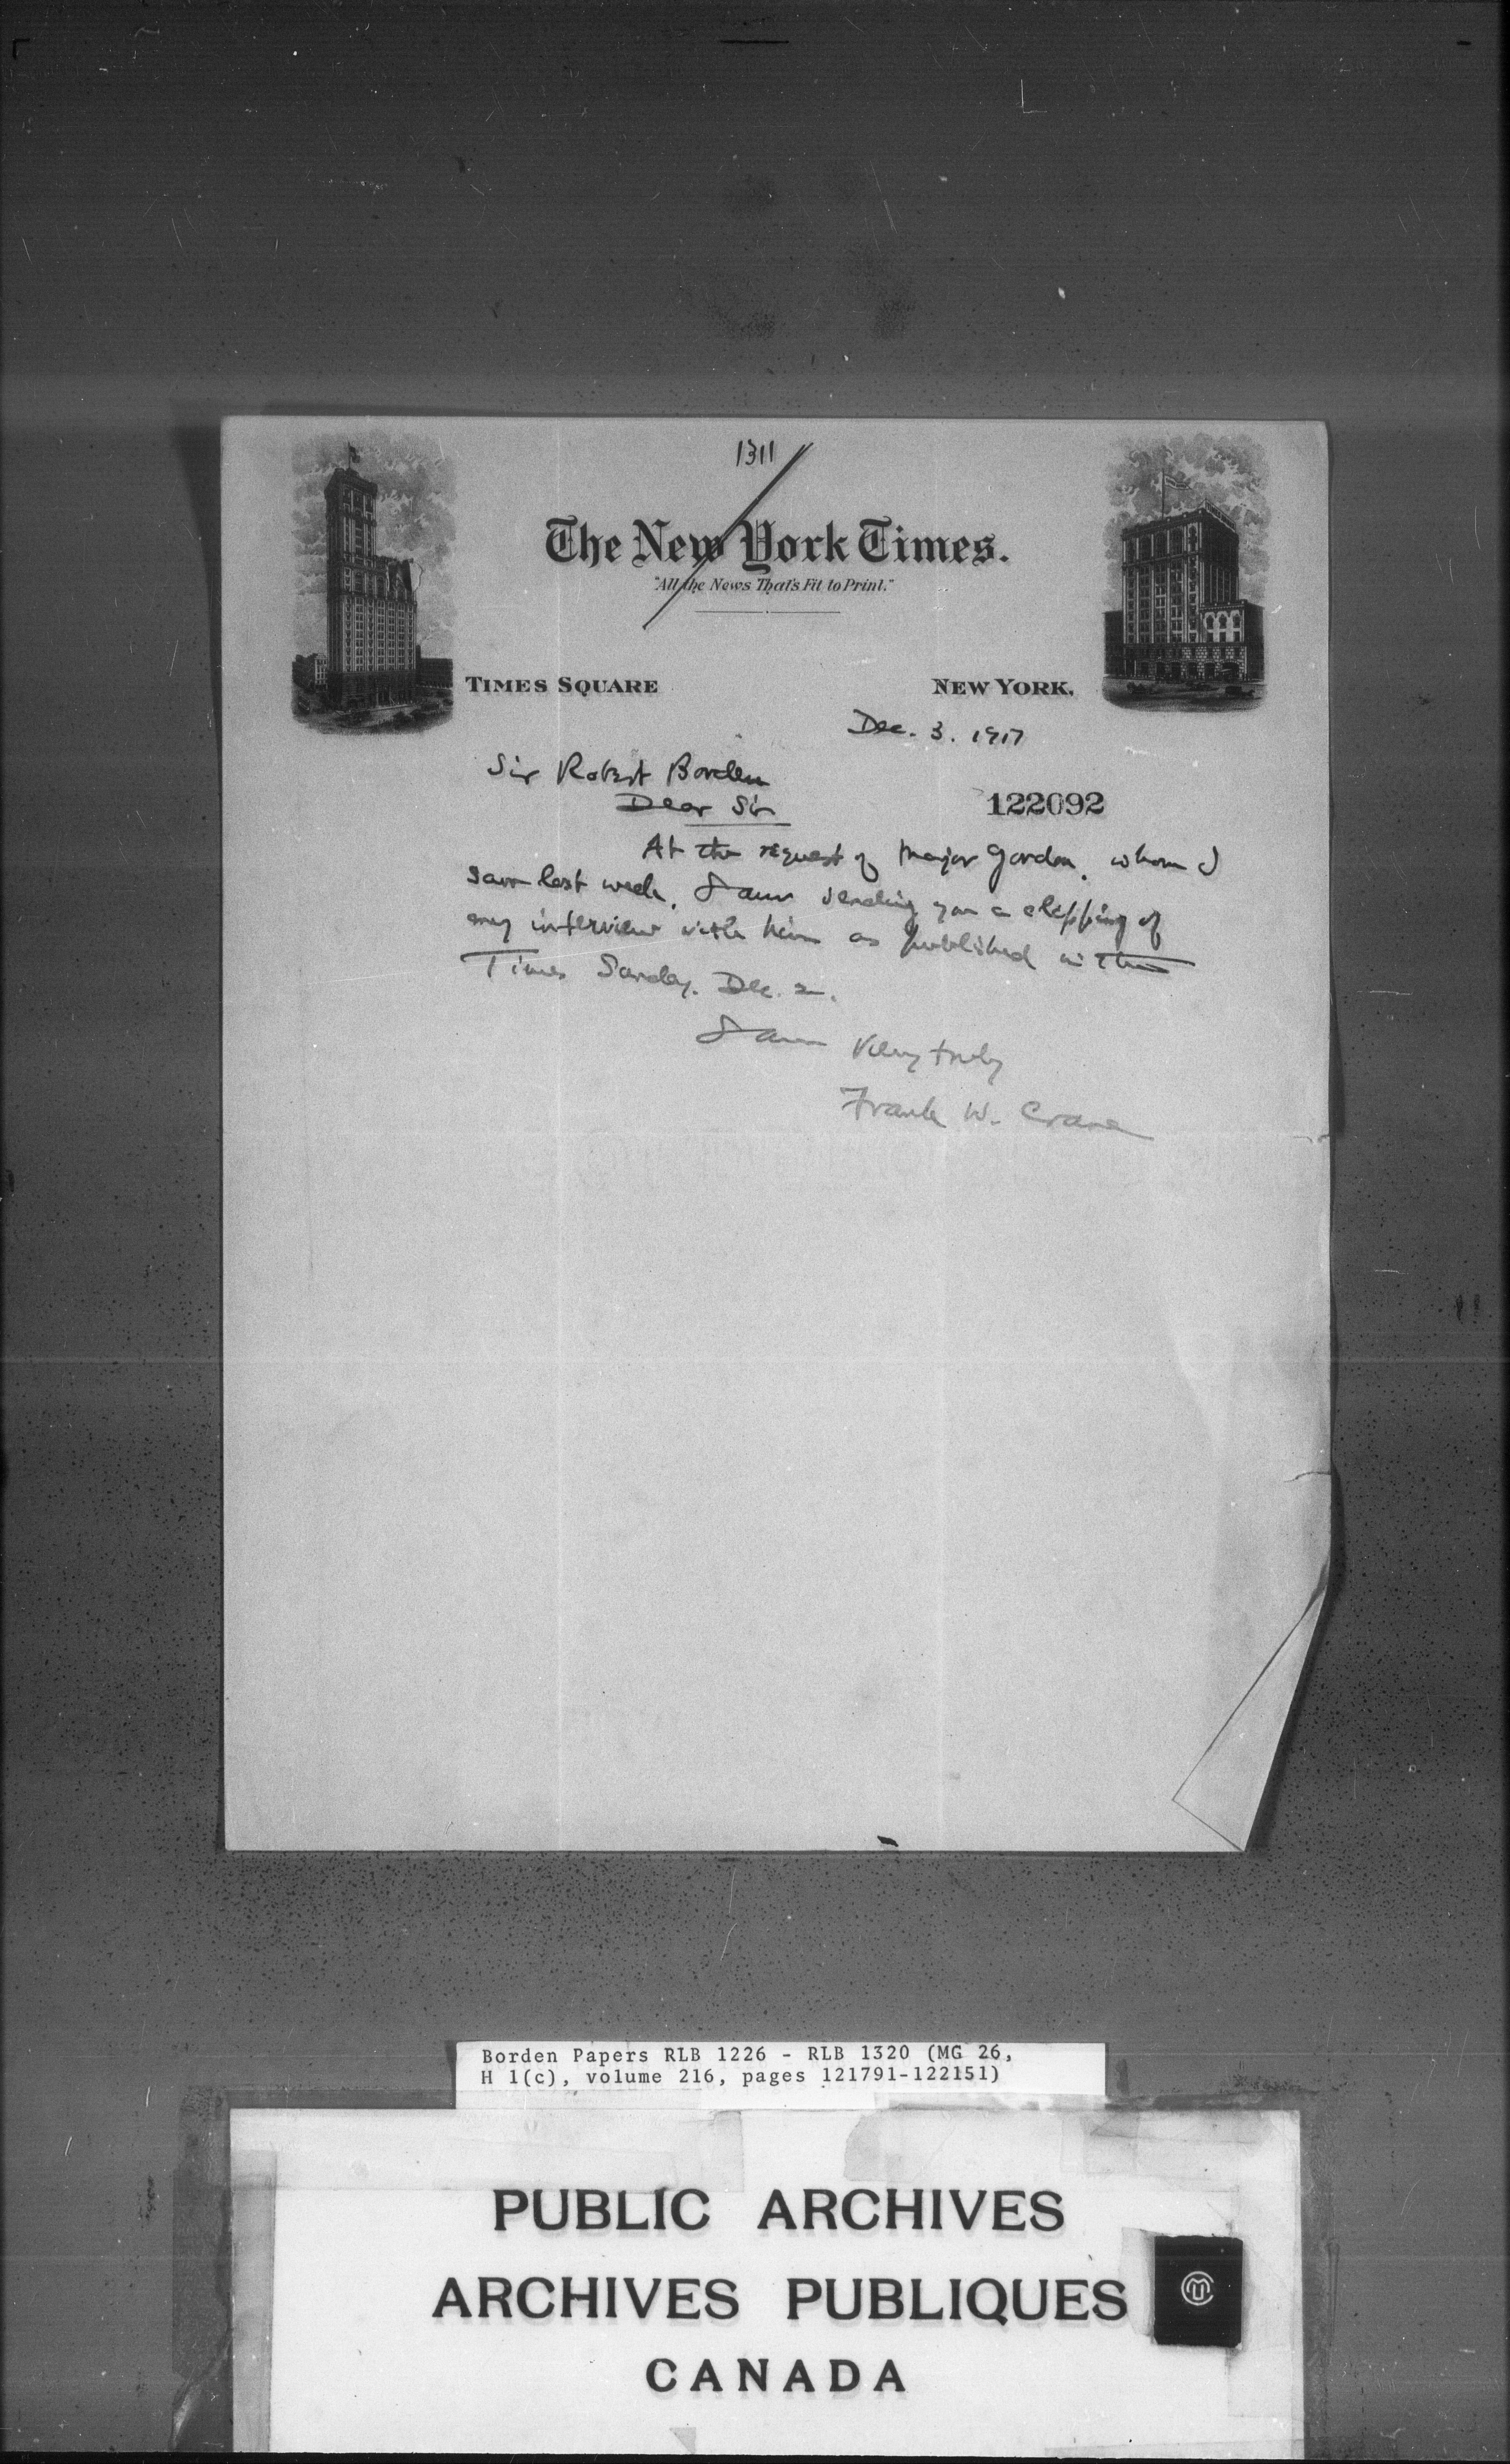 1311
The New York Times.
"All the News That's Fit to Print."
TIMES SQUARE NEW YORK.
Dec. 3. 1917
Sir Robert Borden
Dear Sir
122092
At the request of Major Gordon, whom I
saw last week, I am sending you a clipping of
my interview with him as published in the
Times Sunday, Dec. 2.
I am
Very truly
Frank W. Crane
Borden Papers RLB 1226 - RLB 1320 (MG 26,
H 1(c), volume 216, pages 121791-122151)
PUBLIC ARCHIVES
ARCHIVES PUBLIQUES
CANADA